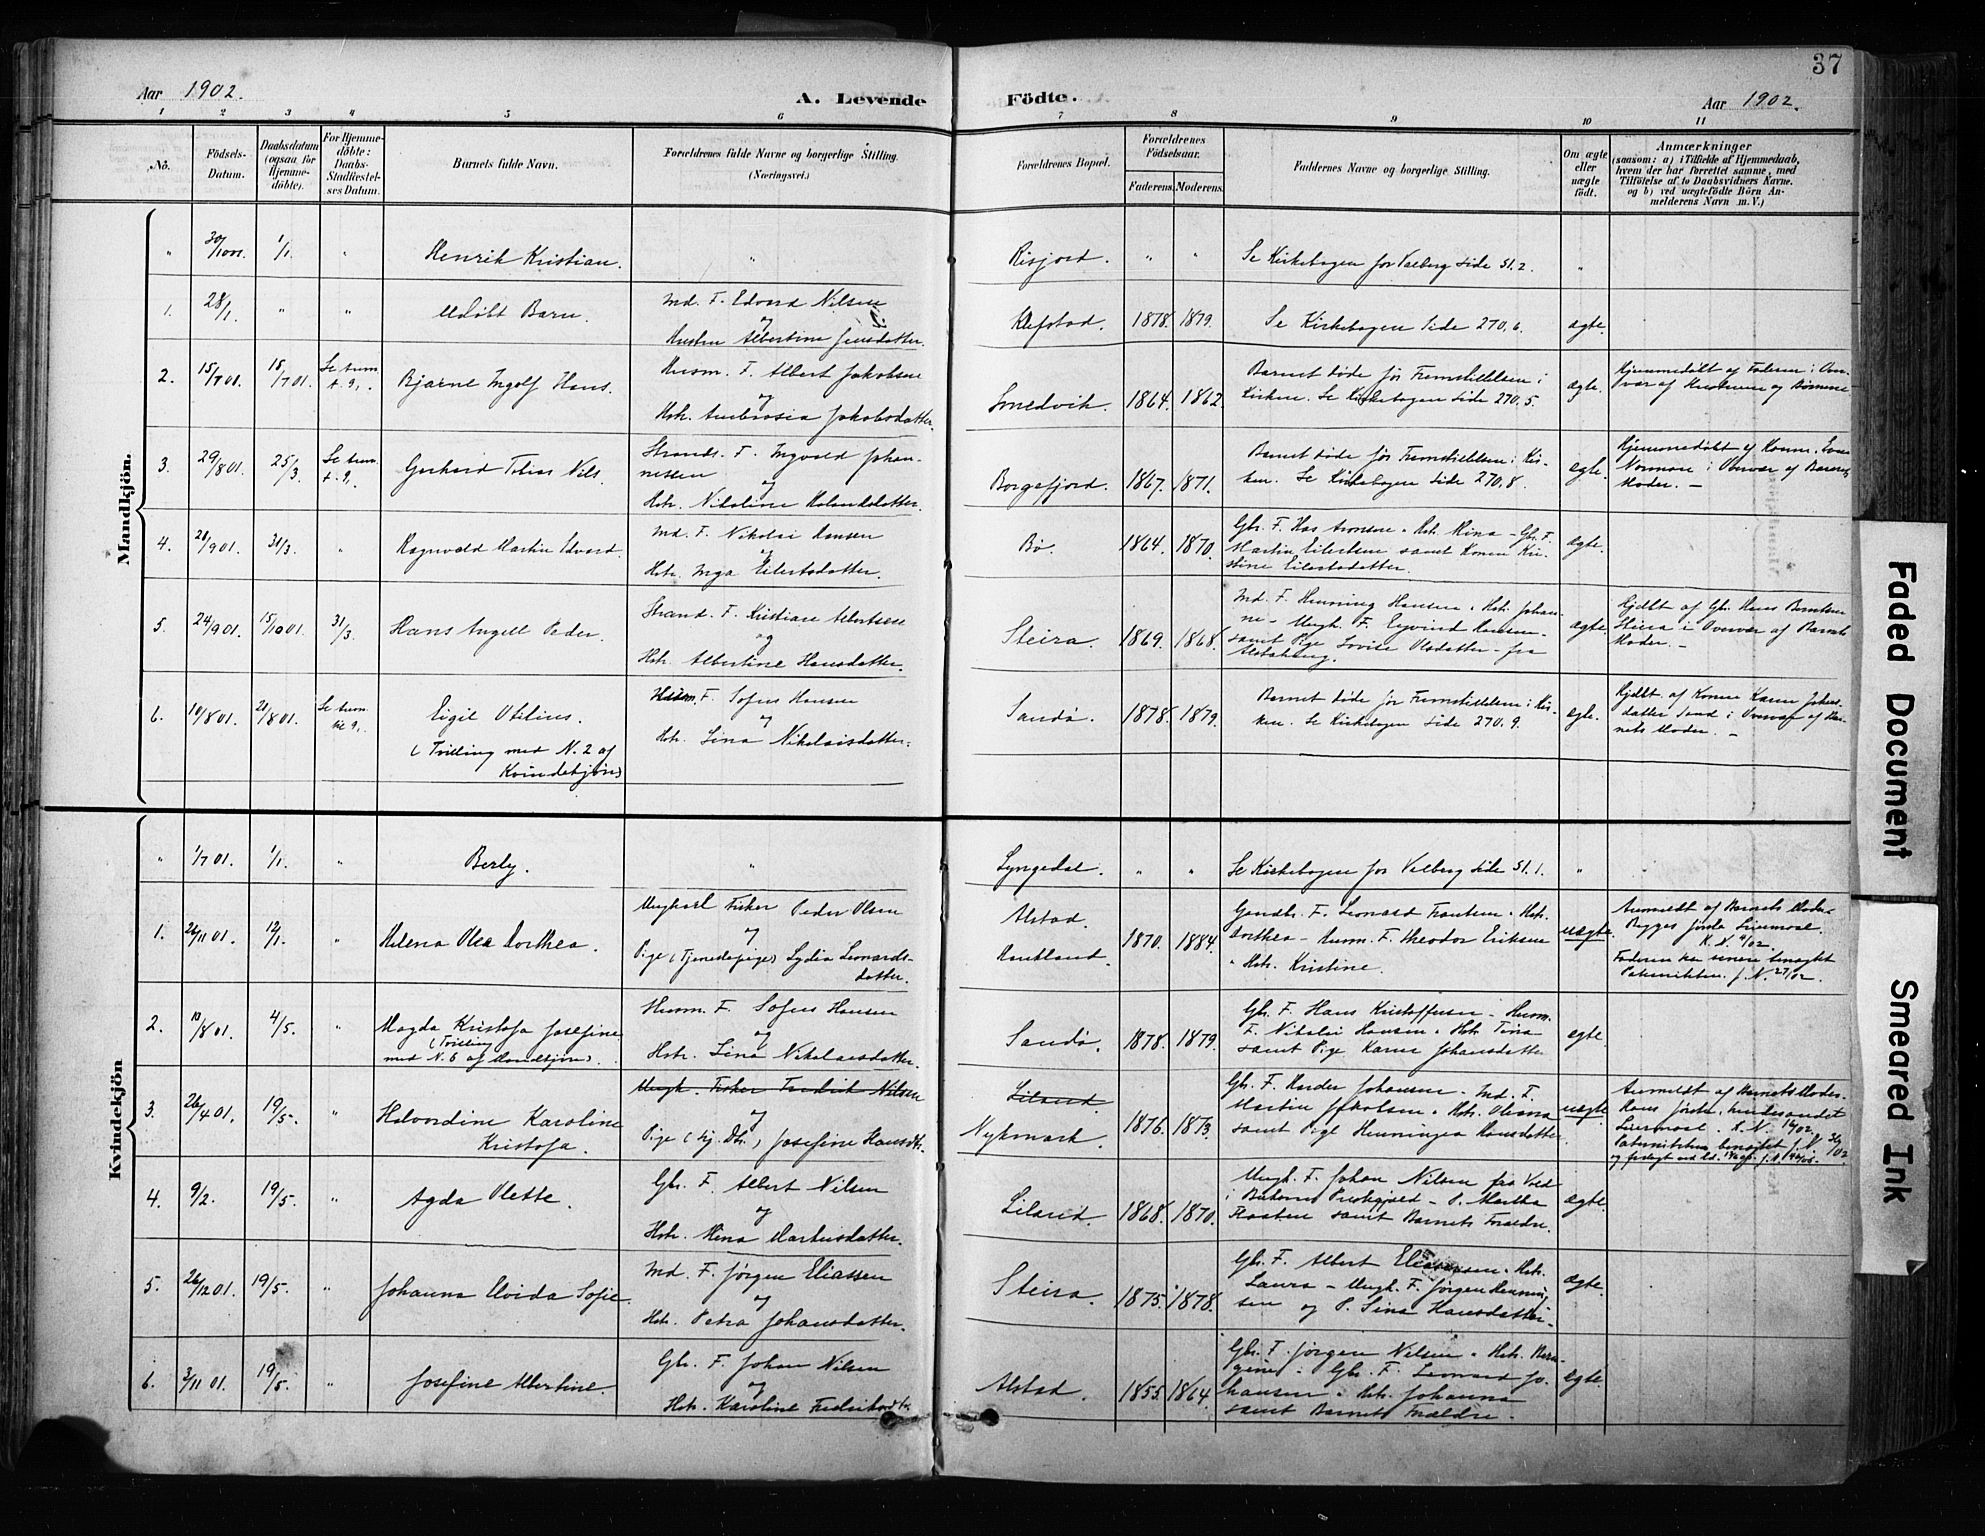 37
Aar 1902. A. Levende Födte. Aar 1902.
1 2 3 4 5 6 7 8 9 10 11
No.
Födsels-
Datum.
Daabsdatum
(ogsaa for
Hjemme-
döbte).
For Hjemme-
döbte:
Daabs-
Stadfæstel-
ses Datum.
Barnets fulde Navn.
Forældrenes fulde Navne og borgerlige Stilling.
(Næringsvei.)
Forældrenes Bopæl.
Forældrenes
Födselsaar.
Faderens. Moderens.
Faddernes Navne og borgerlige Stilling.
Om ægte
eller
uægte
født.
Anmærkninger
(saasom: a) i Tilfælde af Hjemmedaab,
hvem der har forrettet samme, med
Tilföielse af to Daabsvidners Navne.
og b) ved uægtefödte Börn An-
melderens Navn m. V.)
Mandkjön.
" 1/1. " Henrik Kristian. " Risjord. " " Se Kirkebogen for Valberg Side 51.2. "
1. 28/1. " " Udøbt Barn.
Md. F. Edvard Nilsen
og
Hustru Albertine Jensdatter.
Klefstad. 1878. 1879. Se Kirkebogen Side 270.6. ægte.
2. 15/7 01. 18/7 01. Bjarne Ingolf Hans.
Husm. F. Albert Jakobsen
og
Hstr. Ambrosia Jakobsdatter.
Smedvik. 1864. 1862.
Barnet døde før Fremstillelsen i
Kirken. Se Kirkebogen Side 270.5.
ægte.
Hjemmedøbt af Faderen i Over-
vær af
3. 29/8 01. 25/3. Gerhard Tobias Nils.
Strands. F. Ingvald Johan-
nessen
og
Hstr. Nikoline Rolandsdatter.
Borgefjord. 1867. 1871.
Barnet døde før Fremstillelsen i Kir-
ken. Se Kirkebogen Side 270.8.
ægte.
Hjemmedøbt af Konne
i Overvær af Barnets
Moder. —
4. 28/9 01. 31/3. " Ragnvald Martin Edvard.
Md. F. Nikolai Hansen
og
Hstr. Inga Eilertsdatter.
Bø. 1864. 1870.
Gbr. F. Hans Aronsen. Hstr. Mina – Gbr. F.
Martin Eilertsen samt Konen Kri-
stine Eilertsdatter.
ægte.
5. 24/9 01. 15/10 01. 31/3. Hans Angell Peder.
Strand. F. Kristian Albertsen
og
Hstr. Albertine Hansdatter.
Steira. 1869. 1868.
Md. F. Henning Hansen. Hstr. Johan-
ne – Ungk. F. Eyvind Hansen –
samt Pige Lovise Olsdatter – fra
ægte.
Hjdbt. af Gbr. Hans Berntsen
Steira i Overvær af Barnets
Moder. —
6. 10/8 01. 21/8 01. Eigil Otelius.
(Tvilling med N. 2 af
Kvindekjøn)
Husm. F. Sofus Hansen
og
Hstr. Lina Nikolaisdatter.
Sandø. 1878. 1879.
Barnet døde før Fremstillelsen i Kir-
ken. Se Kirkebogen Side 270.9.
ægte.
Hjdbt. af Konen Karen Johans-
datter Sand i Overvær af Bar-
nets Moder. —
Kvindekjön
" 1/7 01. 1/1. " Berly. " Lyngedal. " " Se Kirkebogen for Valberg Side 51.1. "
1. 26/11 01. 12/1. " Helena Olea Dorthea.
Ungkarl Fisker Peder Olsen
og
Pige (Tjenestepige) Lydia Leonards-
datter.
Alstad
1870. 1884.
Gaardbr. F. Leonard Frantsen. Hstr.
Dorthea – Husm. F. Theodor Eriksen
" Hstr. Kristine.
uægte.
Anmeldt af Barnets Moder.
Begges første Leiermaal.
Faderen har senere benægtet
Paterniteten. J. N. 27/02
2. 10/8 01. 4/5. " Magda Kristofa Josefine
(Tvilling
med N. 6 af Mandkjøn).
Husm. F. Sofus Hansen
og
Hstr. Lina Nikolaisdatter.
Sandø. 1878. 1879.
Gbr. F. Hans Kristoffersen – Husm.
F. Nikolai Hansen. Hstr. Tina
samt Pige Karen Johansdatter
ægte.
3. 26/4 01. 19/5. " Halvardine Karoline
Kristofa.
Ungk. Fisker Fredrik Nilsen
og
Pige (Hj. Dtr.) Josefine Hansdtr.
Liland.
Nykmark. 1876. 1873.
Gbr. F. Peder Johansen – Md. F.
Martin Jakobsen. Hstr. Oleana
samt Pige Henningea Hansdatter.
uægte.
Anmeldt af Barnets Moder.
Hans første, hendes andet
Leiermaal.
Paterniteten benægtet J. N. 36/02
4. 9/2. 19/5. " Agda Olette.
Gbr. F. Albert Nilsen
og
Hstr. Mina Martensdatter.
Liland. 1868. 1870.
Ungk. F. Johan Nilsen fra Vold
i Buksnes Prestegjæld – P. Martha
samt Barnets Forældre.
ægte.
5. 26/12 01. 19/5. " Johanna Hvida Sofie.
Md. F. Jørgen Eliassen
og
Hstr. Petra Johansdatter.
Steira. 1875. 1878.
Gbr. F. Albert Eliassen. Hstr.
Laura – Ungk. F. Jørgen Henning
sen og P. Lina Hansdatter.
ægte.
6. 3/11 01. 19/5. " Josefine Albertine.
Gbr. F. Johan Nilsen
og
Hstr. Karoline Fredriksdtr.
Alstad. 1855. 1864.
Gbr. F. Jørgen Nilsen. Hstr. Ber-
gine. Gbr. F. Leonard Jo-
hansen. Hstr. Johanna
samt Barnets Forældre.
ægte.
Faded Document
Smeared Ink